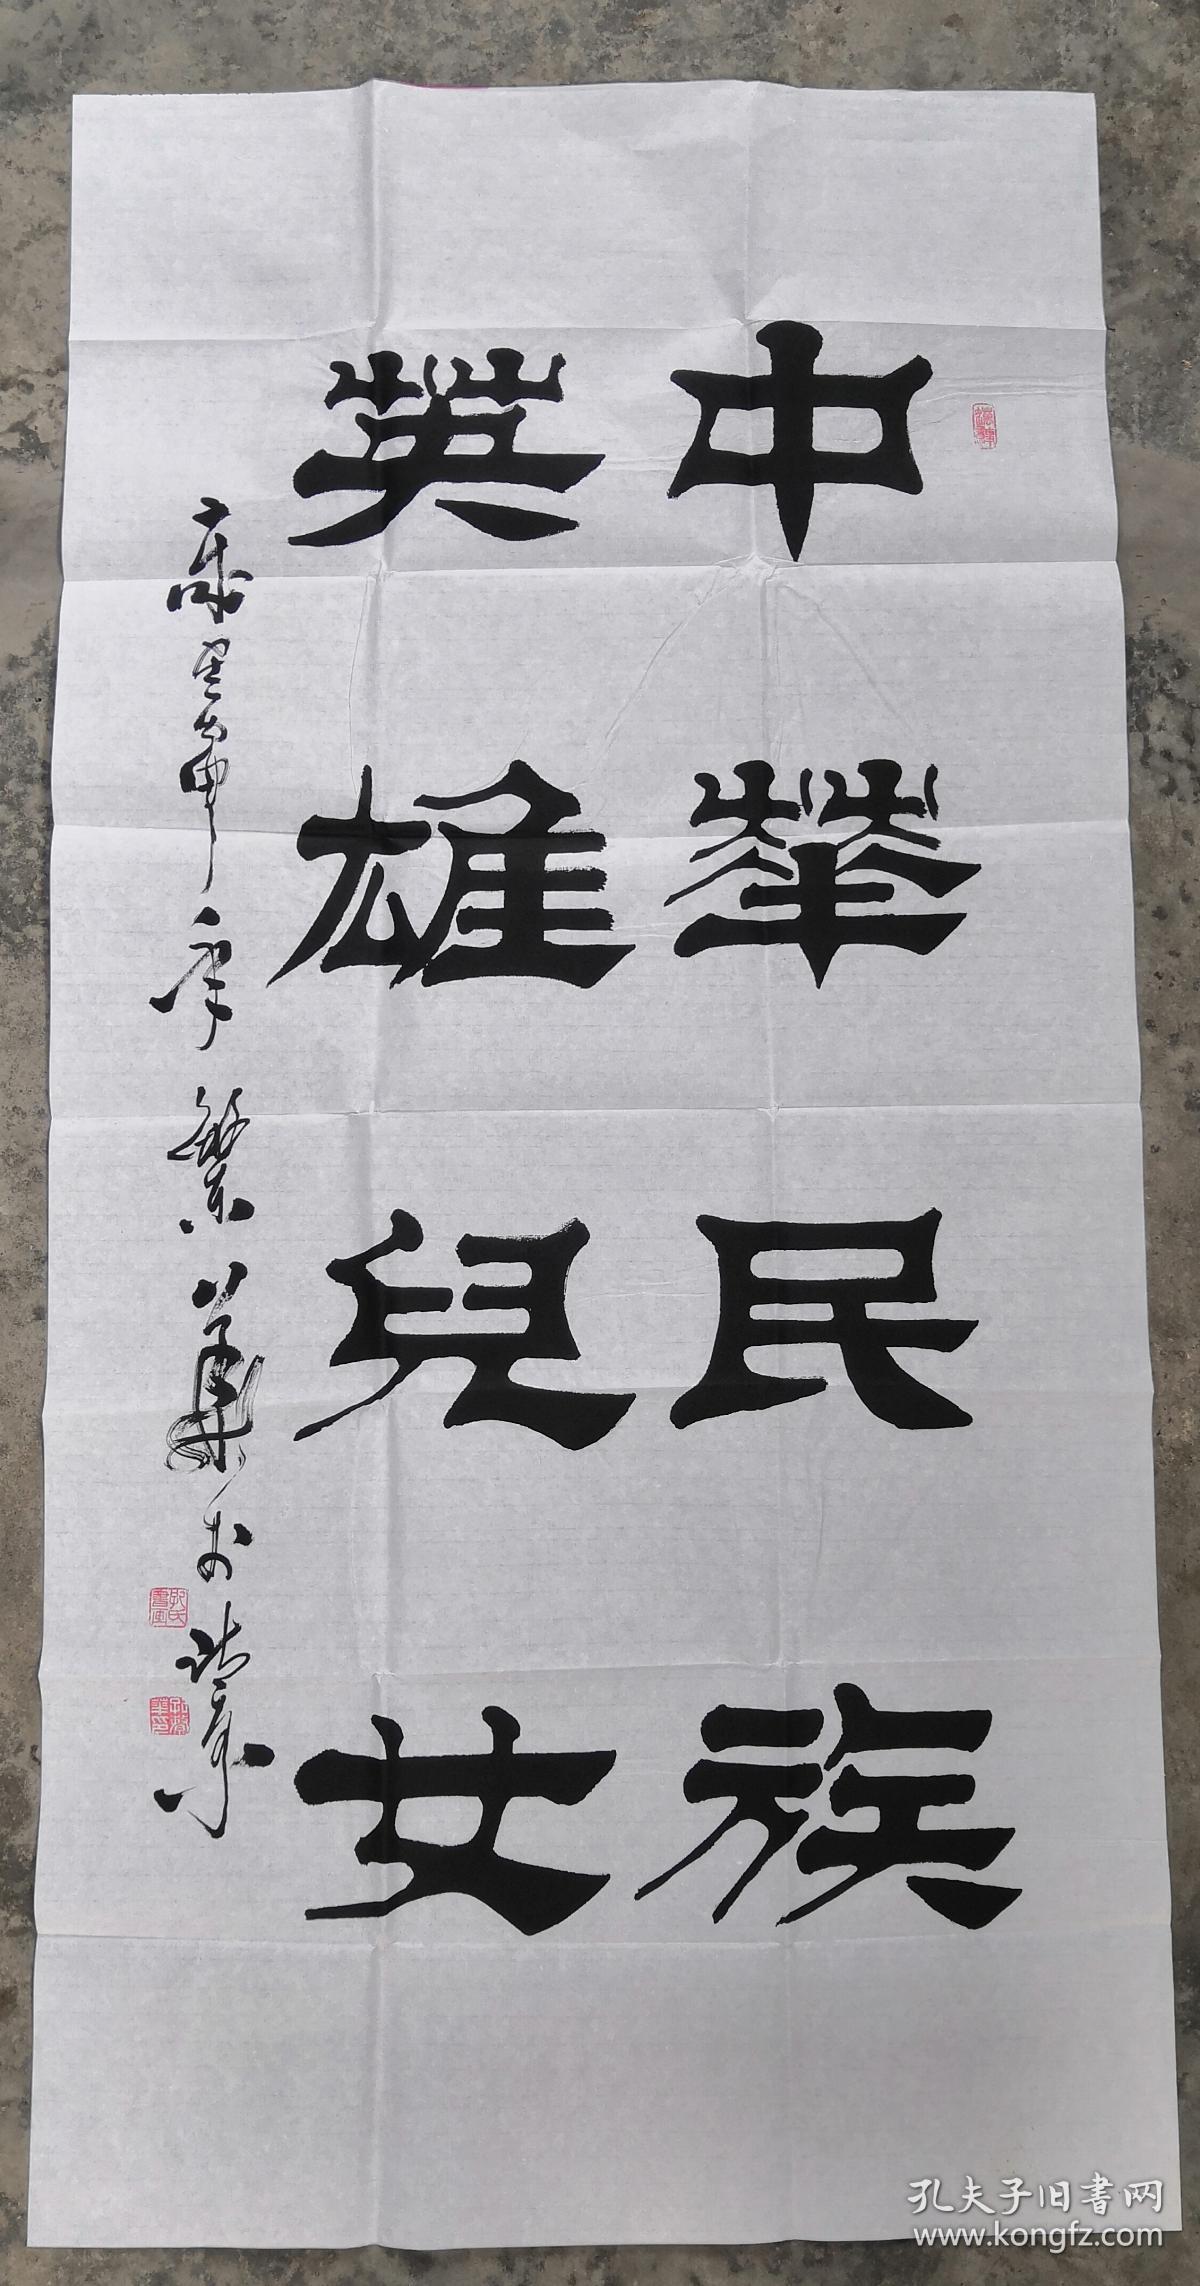 中華民族
英雄兒女
年 繁華於北京
孔夫子旧书网
www.kongfz.com